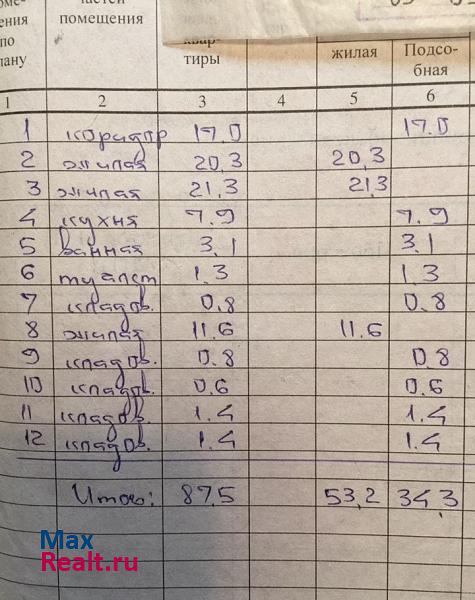 частей
помещения
по
тиры
жилая
Подсо-
бная
1 2 3 4 5 6
1 коридор 17.0 17.0
2 жилая 20,3 20,3
3 жилая 21,3 21,3
4 кухня 7.9 7.9
5 ванная 3,1 3,1
6 туалет 1.3 1.3
7 кладов. 0,8 0,8
8 жилая 11.6 11.6
9 кладов. 0.8 0.8
10 кладов. 0.6 0.6
11 кладов. 1.4 1.4
12 кладов. 1.4 1.4
Итого: 87,5 53,2 34,3
Max
Realt.ru